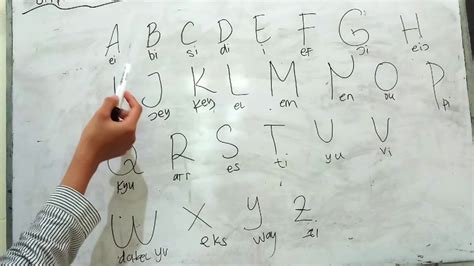 A B C D E F G H
ei bi si di i ef Ji eic
I J K L M N O P
Jey key el em en ou pi
Q R S T U V
kyu arr es ti yu vi
W X Y Z
dabel yu eks way zi